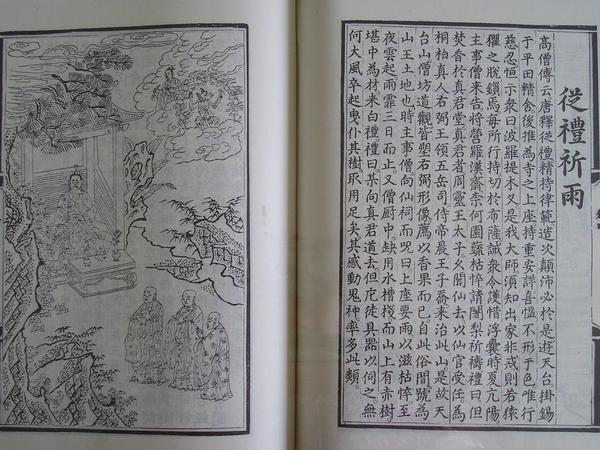 從禮祈雨
高僧傳云唐釋從禮精持律範造次顛沛必於是遊天台掛錫
于平田精舍後推為寺之上座持重安詳喜慍不形于色唯行
慈忍恒示眾曰波羅提木叉是我大師須知出家非戒則若猿
玃之脫鎖焉每所行持切於布薩誠眾令護惜浮囊時夏亢陽
主事僧來告將營羅漢齋柰何園蔬枯悴請闍梨祈禱禮曰但
焚香於真君堂真君者周靈王太子久聞仙去以仙官受任為
桐柏真人右弼王領五岳司侍帝晨王子喬來治此山是故天
台山僧坊道觀皆塑右弼形像薦以香果而已自此俗間號為
山王土地也時主事僧向仙祠而呪曰上座要雨以滋枯悴至
夜雲起雨霏三日而止又僧厨中缺用水槽棧而山上有赤樹
堪中為材來白禮禮曰某向真君道去但庀徒具器以伺之無
何大風卒起曳仆其樹取用足矣其感動鬼神率多此類